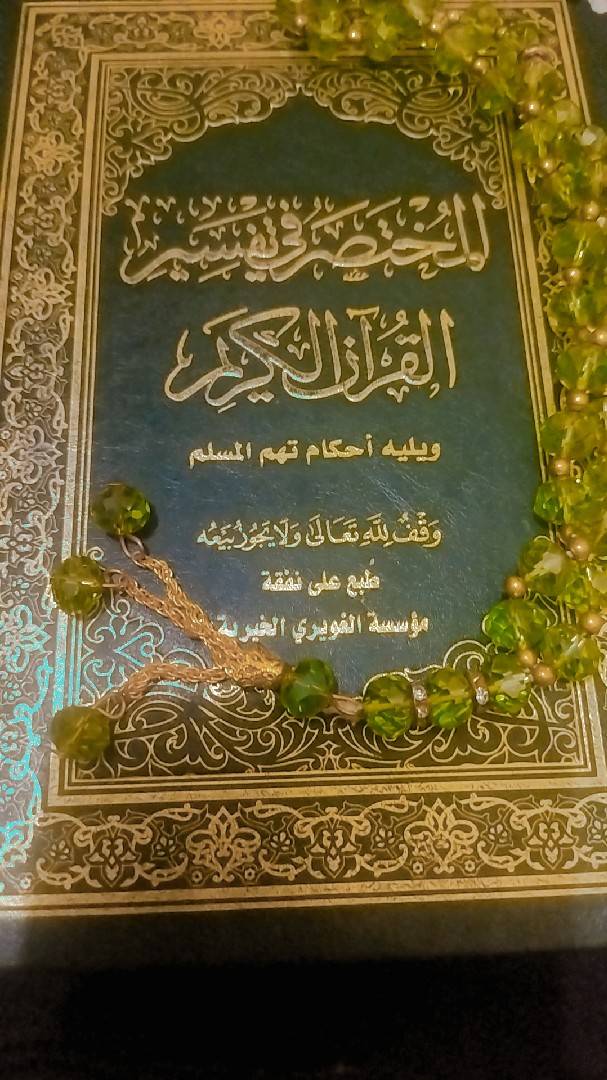 المُختَصَر في تَفسِير
القُرآن الكَرِيم
ويليه أحكام تهم المسلم
وَقْفٌ لِلَّهِ تَعَالَى وَلَا يَجُوزُ بَيْعُه
طُبع على نفقة
مؤسسة الغويري الخيرية